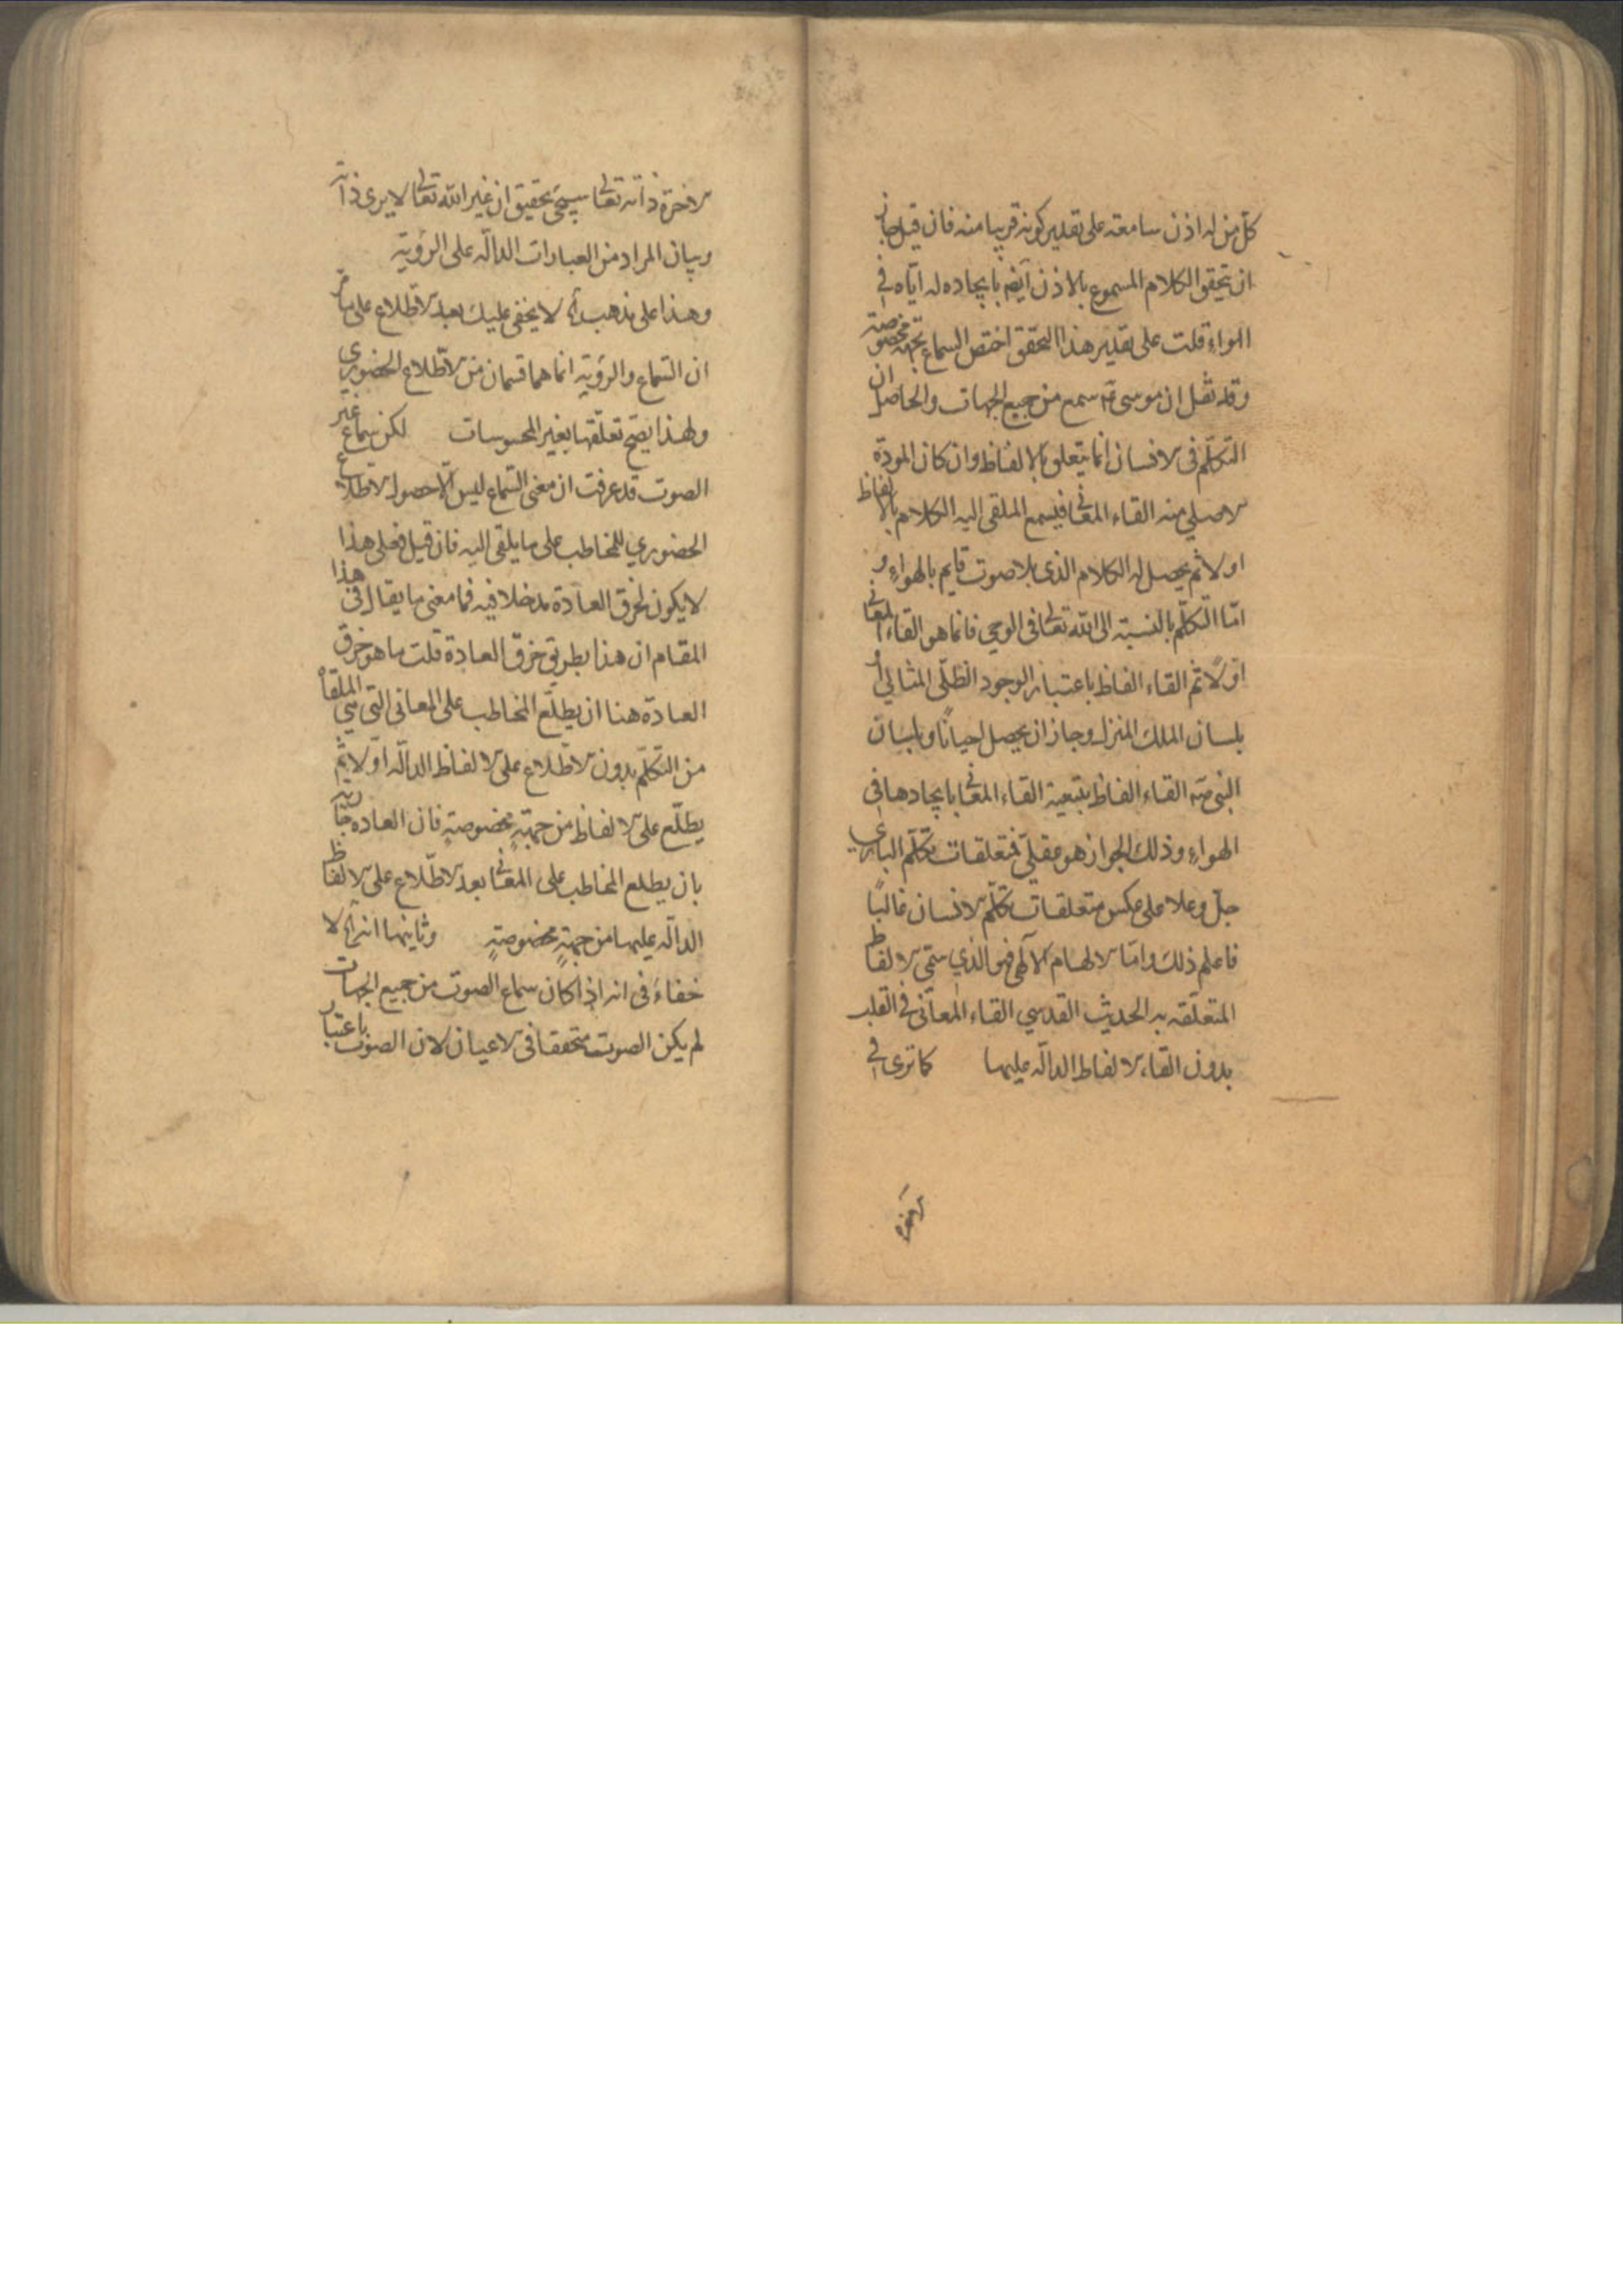 كل من له اذن سامعة على تقدير كونه قريبا منه فان قيل جاز
ان يتحقق الكلام المسموع بالاذن ايضا بايجاده له اياه في
الهواء قلت على تقدير هذا التحقق اختص السماع بجهة مخصوصة
وقد نقل ان موسى ع سمع من جميع الجهات والحاصل ان
التكلم في الانسان انما يتعلق بالالفاظ وان كان
الاصلي منه القاء المعاني فيسمع الملقى اليه الكلام بالالفاظ
اولا ثم يحصل له الكلام الذي بلا صوت قايم بالهواء و
اما التكلم بالنسبة الى الله تعالى في الوحي فانما هو القاء المعاني
اولا ثم القاء الفاظ باعتبار الوجود الظلي المثالي او
بلسان الملك المنزل وجاز ان يحصل احيانا وبلسان
النبي صه القاء الفاظ بتبعية القاء المعاني بايجادها في
الهواء وذلك الجواز هو عقلي فمتعلقات تكلم الباري
جل وعلا على عكس متعلقات تكلم الانسان غالبا
فاعلم ذلك واما الالهام الالهي فهو الذي سمي الالفاظ
المتعلقه به الحديث القدسي القاء المعاني في القلب
بدون القاء الالفاظ الدالة عليها كما ترى في
الاخرة
الاخرة ذاته تعالى سيجئ تحقيق ان غير الله تعالى لا يرى ذاته
وبيان المراد من العبارات الدالة على الرؤية
وهذا على مذهب لا يخفى عليك بعد الاطلاع على ما مر
ان السماع والرؤية انما هما قسمان من الاطلاع الحضوري
ولهذا يصح تعلقها بغير المحسوسات لكن سماع غير
الصوت قد عرفت ان معنى السماع ليس الا حصول الاطلاع
الحضوري للمخاطب على ما يلقى اليه فان قيل فعلى هذا
لا يكون لخرق العادة مدخلا فيه فما معنى ما يقال في هذا
المقام ان هذا بطريق خرق العادة قلت ما هو خرق
العادة هنا ان يطلع المخاطب على المعاني التي هي الملقاة
من التكلم بدون الاطلاع على الالفاظ الدالة اولا ثم
يطلع على الالفاظ من جهة مخصوصة فان العاده جارية
بان يطلع المخاطب على المعاني بعد الاطلاع على الالفاظ
الدالة عليها من جهة مخصوصة وثانيها انه لا
خفاء في انه اذا كان سماع الصوت من جميع الجهات
لم يكن الصوت متحققا في الاعيان لان الصوت باعتبار